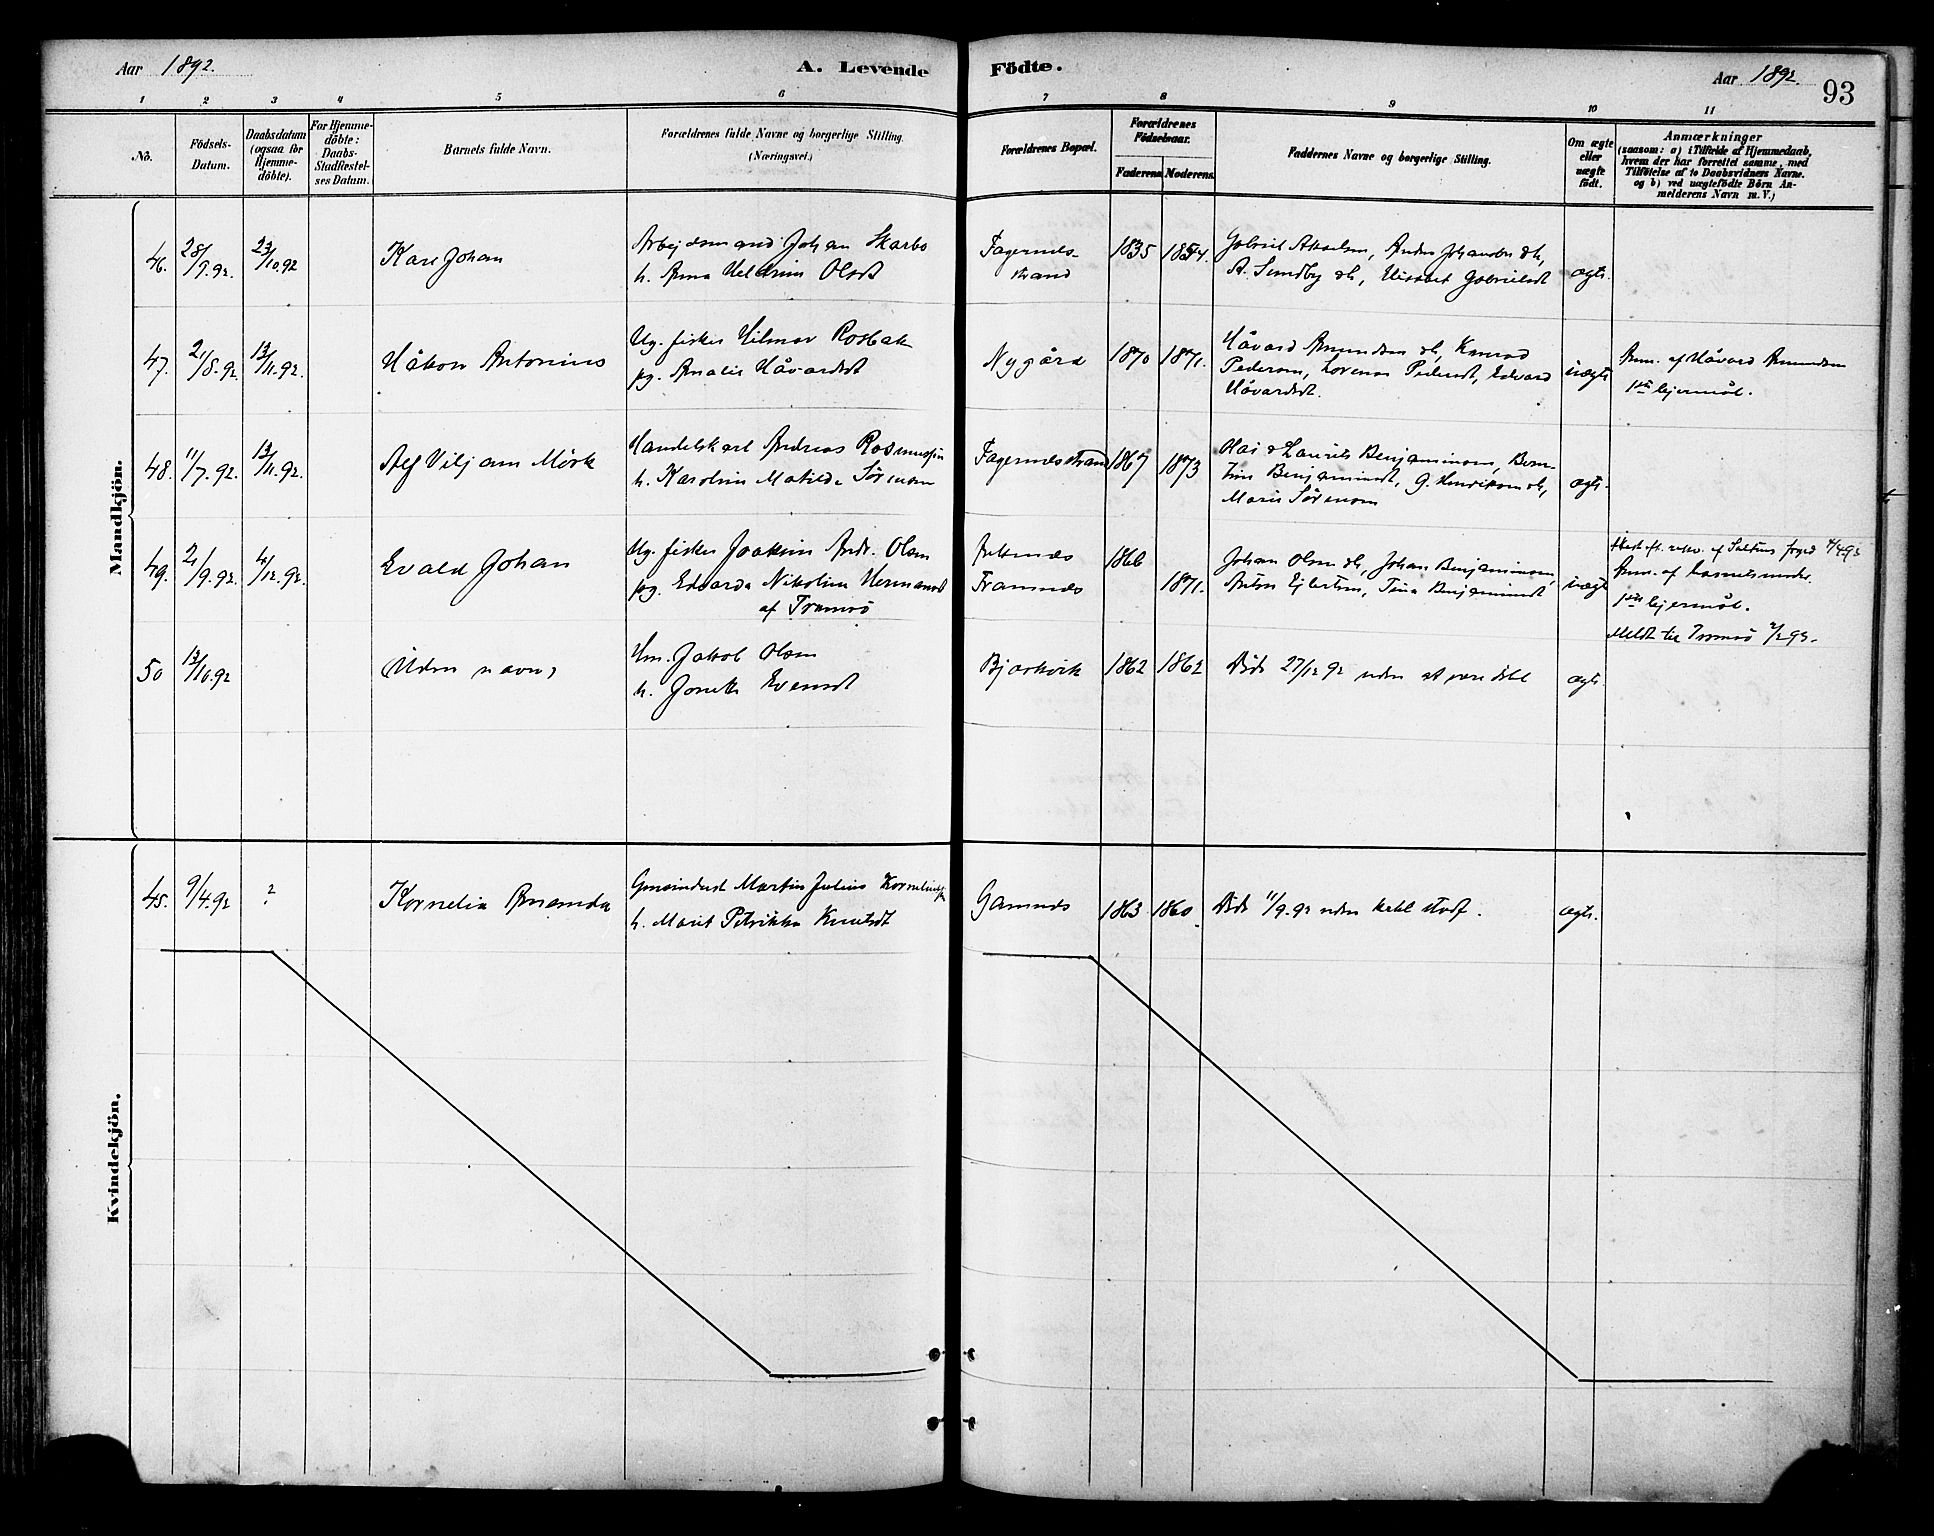 Aar 1892.
A. Levende Födte.
Aar 1892. 93
1 2 3 4 5 6 7 8 9 10 11
No.
Födsels-
Datum.
Daabsdatum
(ogsaa for
Hjemme-
döbte).
For Hjemme-
döbte:
Daabs-
Stadfæstel-
ses Datum.
Barnets fulde Navn.
Forældrenes fulde Navne og borgerlige Stilling.
(Næringsvei.)
Forældrenes Bopæl.
Forældrenes
Födselsaar.
Faderens. Moderens.
Faddernes Navne og borgerlige Stilling.
Om ægte
eller
uægte
födt.
Anmærkninger
(saasom: a) i Tilfælde af Hjemmedaab,
hvem der har forrettet samme, med
Tilföielse af to Daabsvidners Navne.
og b) ved uægtefödte Börn An-
melderens Navn m. V.)
Mandkjön.
46. 28/9.92. 23/10.92 Karl Johan
Arbejdsmand Johan Skarbo
h. Anna Olsdt
Fagernes-
strand
1835 1854.
Gabriel Akselsen, Anders Johansen oh,
A. Sundby oh, Elisabet Gabrielsdt
ægte.
47. 21/8.92. 13/11.92. Håkon Antonius
Ug. fisker Hilmar Rosbak
pg. Amalie Håvardsdt
Nygård
1870 1871.
Håvard Amundsen oh, Konrad
Pedersen, Lorensa Pedersdt, Edvard
Håvardsdt.
uægte
Anm. af Håvard Amundsen
1ste lejermål.
48. 11/7.92. 13/11.92. Alf Viljam Mörk
Handelskarl Andreas Rasmussen
h. Karoline Matilde Sörensen
Fagernesstrand
1867 1873
Laurits Benjaminsen, Bern-
tine Benjaminsdt, G. Henriksen oh,
Marie Sörensen
ægte.
49. 21/9.92. 4/12.92. Evald Johan
Ug. fisker Joakim Andr. Olsen
pg. Edvarda Nikolina Hermansd
af Tromsö
Ankenes
Framnes
1866
1871.
Johan Olsen oh, Johan Benjaminsen,
Anton Ejlertsen, Tina Benjaminsdt
uægte
af Saltens foged
Anm. af barnets moder.
1ste lejermål.
Meldt til Tromsö
50 13/10.92 Uden navn,
Hm. Jakob Olsen
h. Jonetta Evensdt
Bjerkvik
1862 1862
Döde 27/12 92 uden at være döbt
ægte.
Kvindekjön.
45. 9/4.92 ? Kornelia Amanda
Martin Julius Korneliussen
h. Marit Petrikka Knutsdt
Gamnes
1863 1860.
Döde 11/9.92 uden stadf.
ægte.